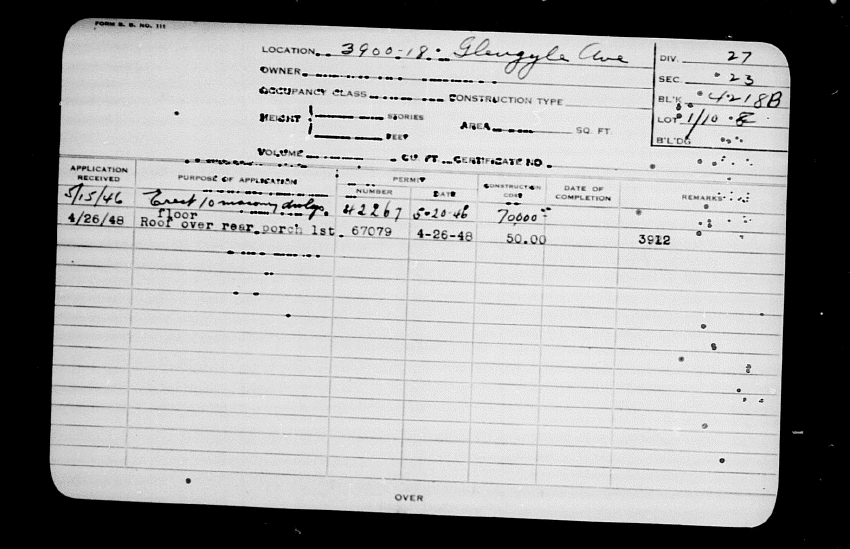 FORM B. B. NO. 111
LOCATION 3900-18 Glengyle Ave
DIV. 27
OWNER
SEC. 23
OCCUPANCY CLASS CONSTRUCTION TYPE
BL'K 4218B
HEIGHT STORIES
LOT 1/10
FEET
AREA SQ. FT.
B'L'DG
VOLUME CU FT. CERTIFICATE NO.
APPLICATION RECEIVED PURPOSE OF APPLICATION PERMIT NUMBER DATE CONSTRUCTION COST DATE OF COMPLETION REMARKS
5/15/46 Erect 10 masonry dwlgs. 42267 5-20-46 70000
floor
4/26/48 Roof over rear porch 1st. 67079 4-26-48 50.00 3912
OVER